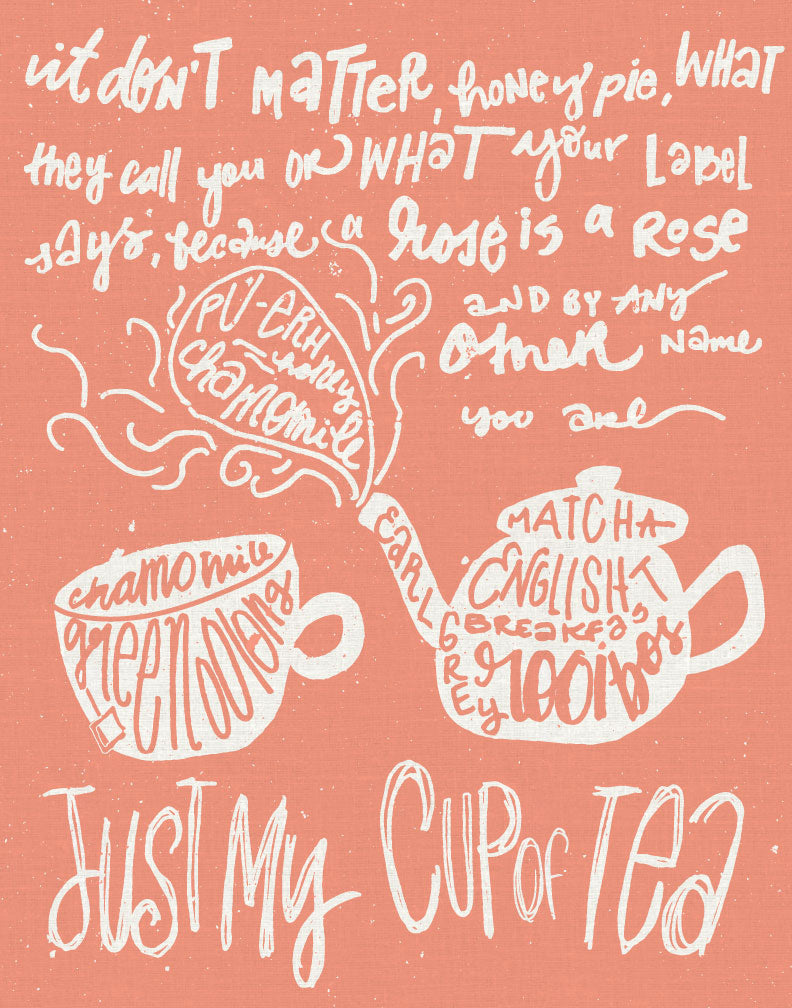 it don't MATTER, honey pie, WHAT
they call you OR WHAT your LABEL
says, because a rose is a ROSE
AND BY ANY
other NAME
you are
PU-ERH
honey
chamomile
EARL GREY
MATCHA
ENGLISH
BREAKFAST
rooibos
chamomile
green oolong
JUST MY CUP OF TEA